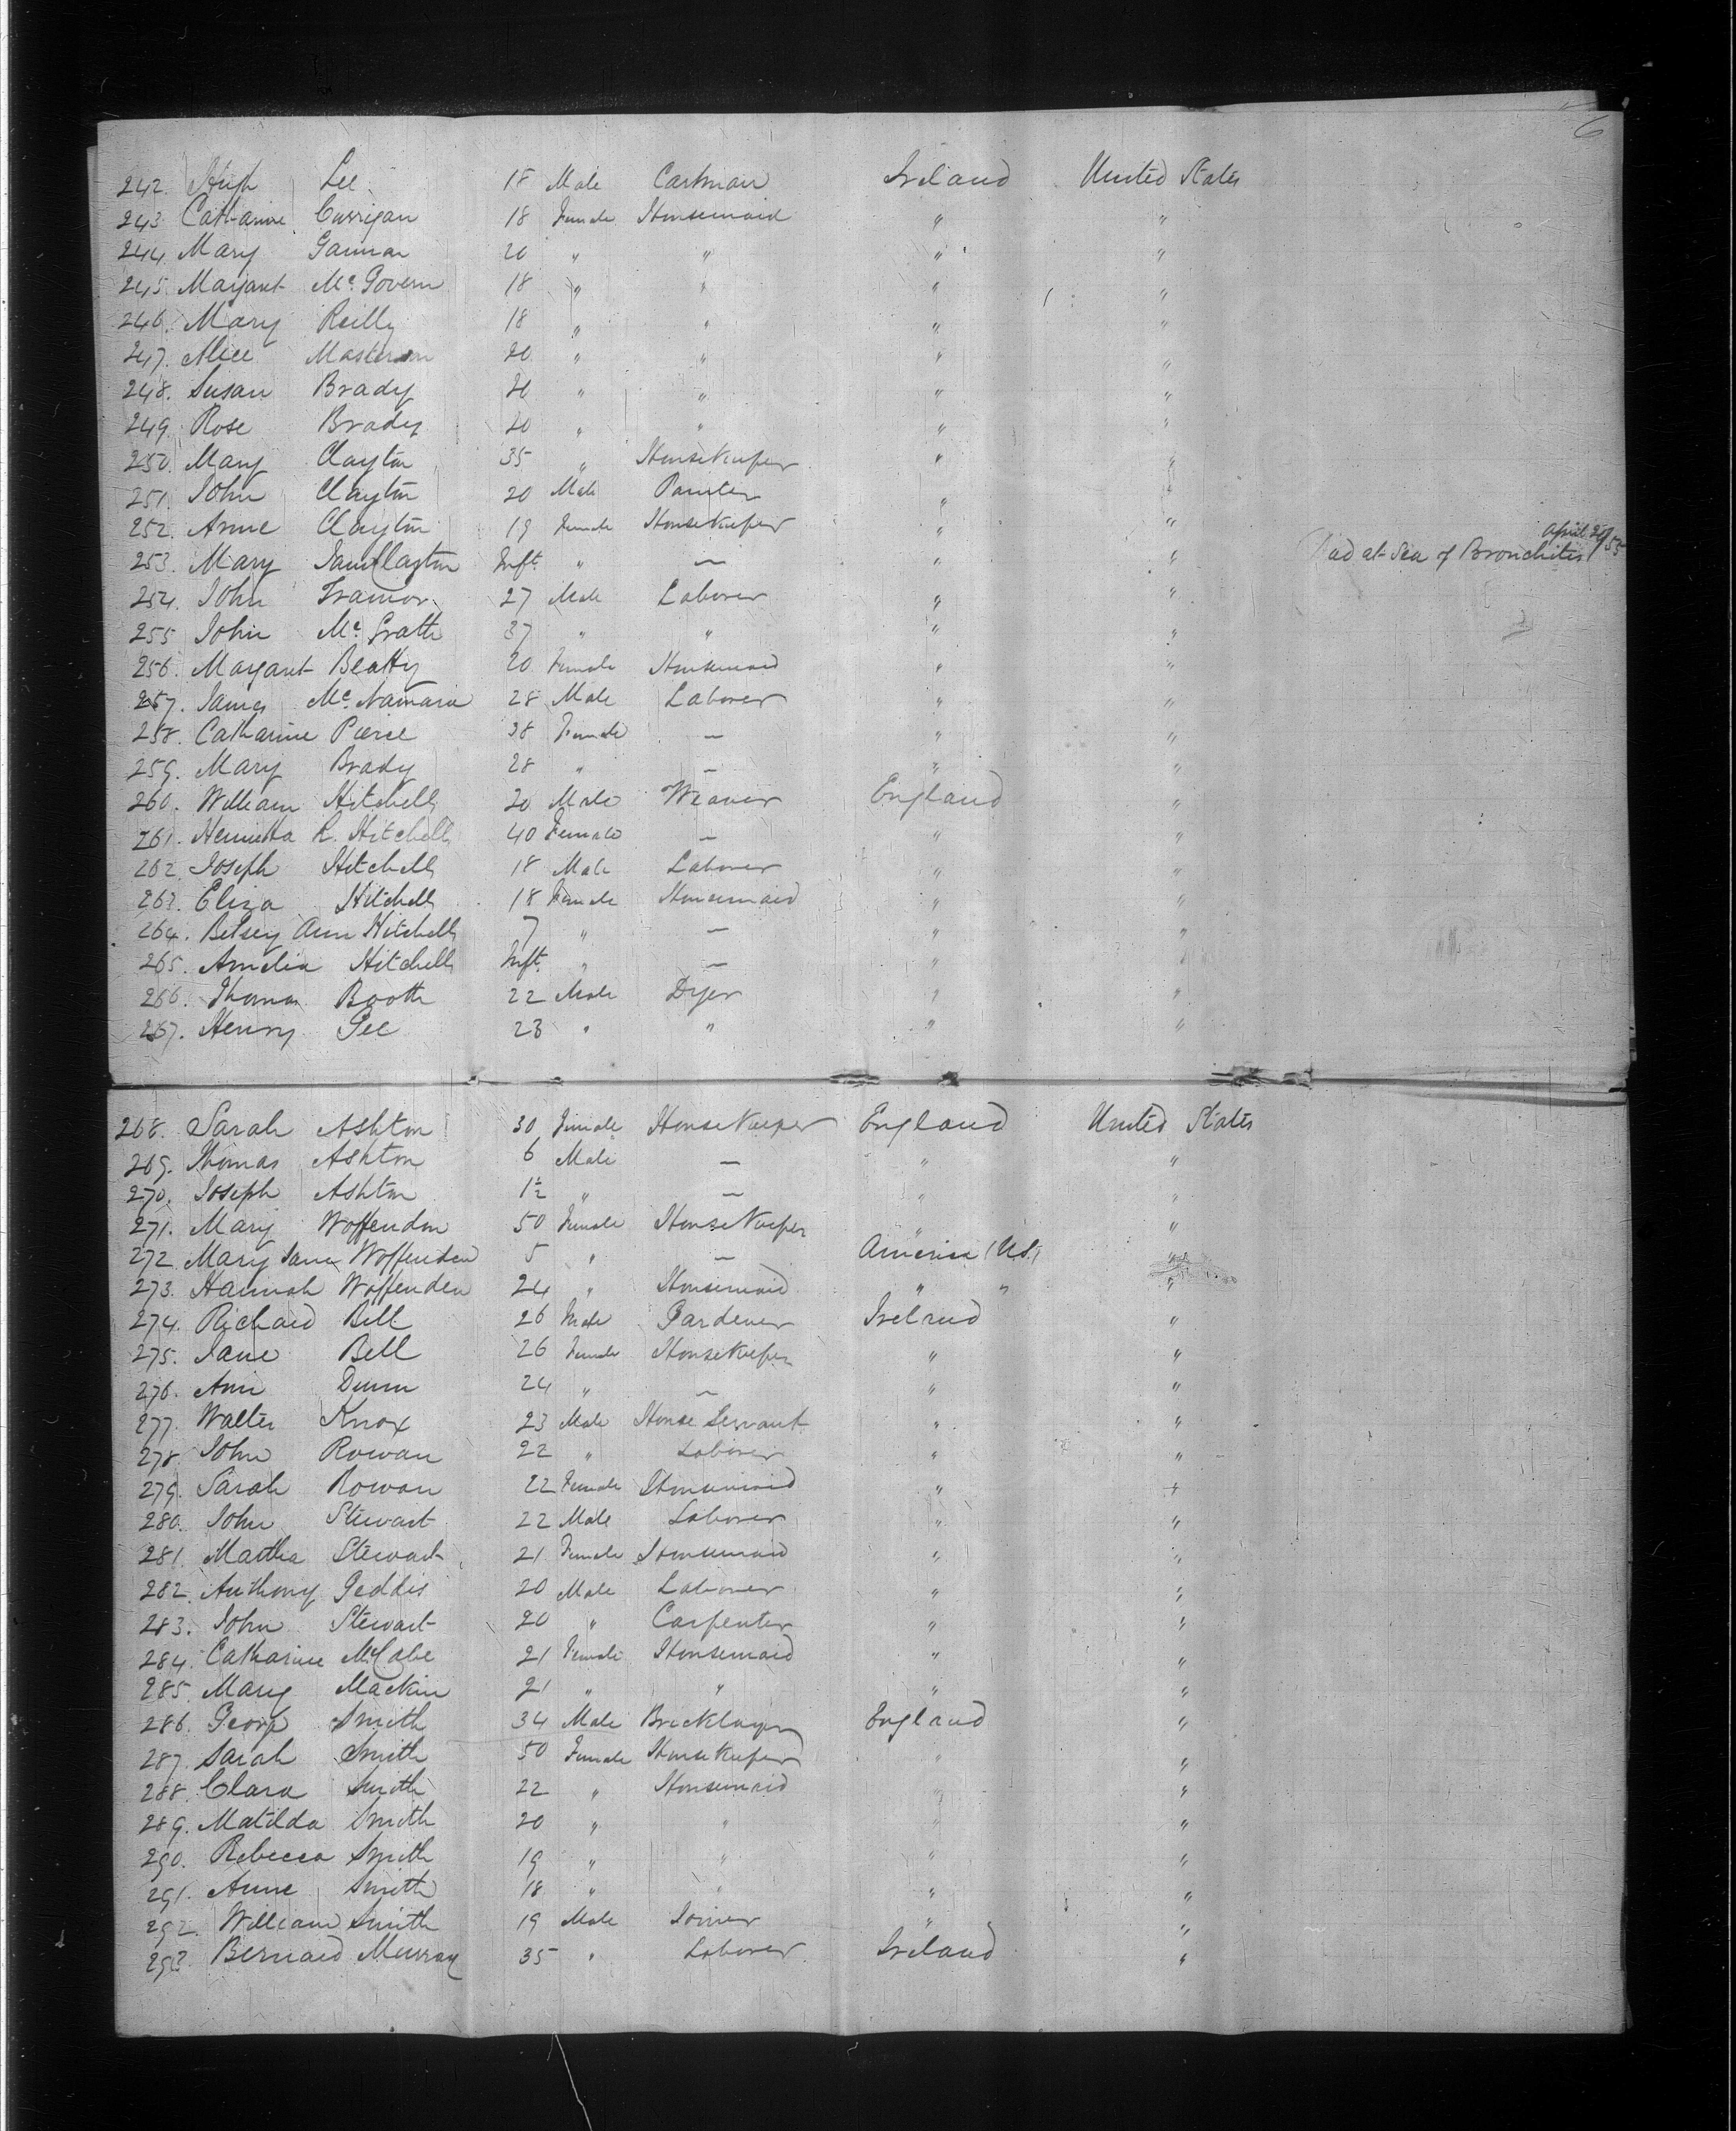 6
242. Hugh Lee 18 Male Carkman Ireland United States
243 Catharine Corrigan 18 Female Housemaid " "
244. Mary Gannon 20 " " " "
245. Margaret Mc Govern 18 " " " "
246. Mary Reilly 18 " " " "
247. Alice Masterson 20 " " " "
248. Susan Brady 20 " " " "
249. Rose Brady 20 " " " "
250. Mary Clayton 35 " HouseKeeper " "
251. John Clayton 20 Male Painter " "
252. Anne Clayton 19 Female HouseKeeper " "
April 29/55
253. Mary Jane Clayton Inft. " — " " Died at Sea of Bronchitis
254. John 27 Male Laborer " "
255 John Mc Grath 37 " " " "
256. Margaret Beatty 20 Female Housemaid " "
257. James Mc Namara 28 Male Laborer " "
258. Catharine Pierce 38 Female — " "
259. Mary Brady 28 " — " "
260. William Hitchell 20 Male Weaver England "
261. Henrietta R. Hitchell 40 Female — " "
262. Joseph Hitchell 18 Male Laborer " "
263. Eliza Hitchell 18 Female Housemaid " "
264. Betsey Ann Hitchell 7 " — " "
265. Amelia Hitchell Inft. " — " "
266. Thomas Booth 22 Male Dyer " "
267. Henry Gee 23 " " " "
268. Sarah Ashton 30 Female HouseKeeper England United States
269. Thomas Ashton 6 Male — " "
270. Joseph Ashton 1½ " — " "
271. Mary Woffendon 50 Female HouseKeeper " "
272. Mary Jane Woffenden 5 " — America (U.S.) "
273. Hannah Woffenden 24 " Housemaid " " "
274. Richard Bell 26 Male Gardener Ireland "
275. Jane Bell 26 Female HouseKeeper " "
276. Ann Dunn 24 " — " "
277. Walter Knox 23 Male House Servant " "
278. John Rowan 22 " Laborer " "
279. Sarah Rowan 22 Female Housemaid " "
280. John Stewart 22 Male Laborer " "
281. Martha Stewart 21 Female Housemaid " "
282. Anthony Geddis 20 Male Laborer " "
283. John Stewart 20 " Carpenter " "
284. Catharine McCabe 21 Female Housemaid " "
285. Mary Mackin 21 " " " "
286. George Smith 34 Male Bricklayer England "
287. Sarah Smith 50 Female HouseKeeper " "
288. Clara Smith 22 " Housemaid " "
289. Matilda Smith 20 " " " "
290. Rebecca Smith 19 " " " "
291. Anne Smith 18 " " " "
292. William Smith 19 Male Joiner " "
293. Bernard Murray 35 " Laborer Ireland "